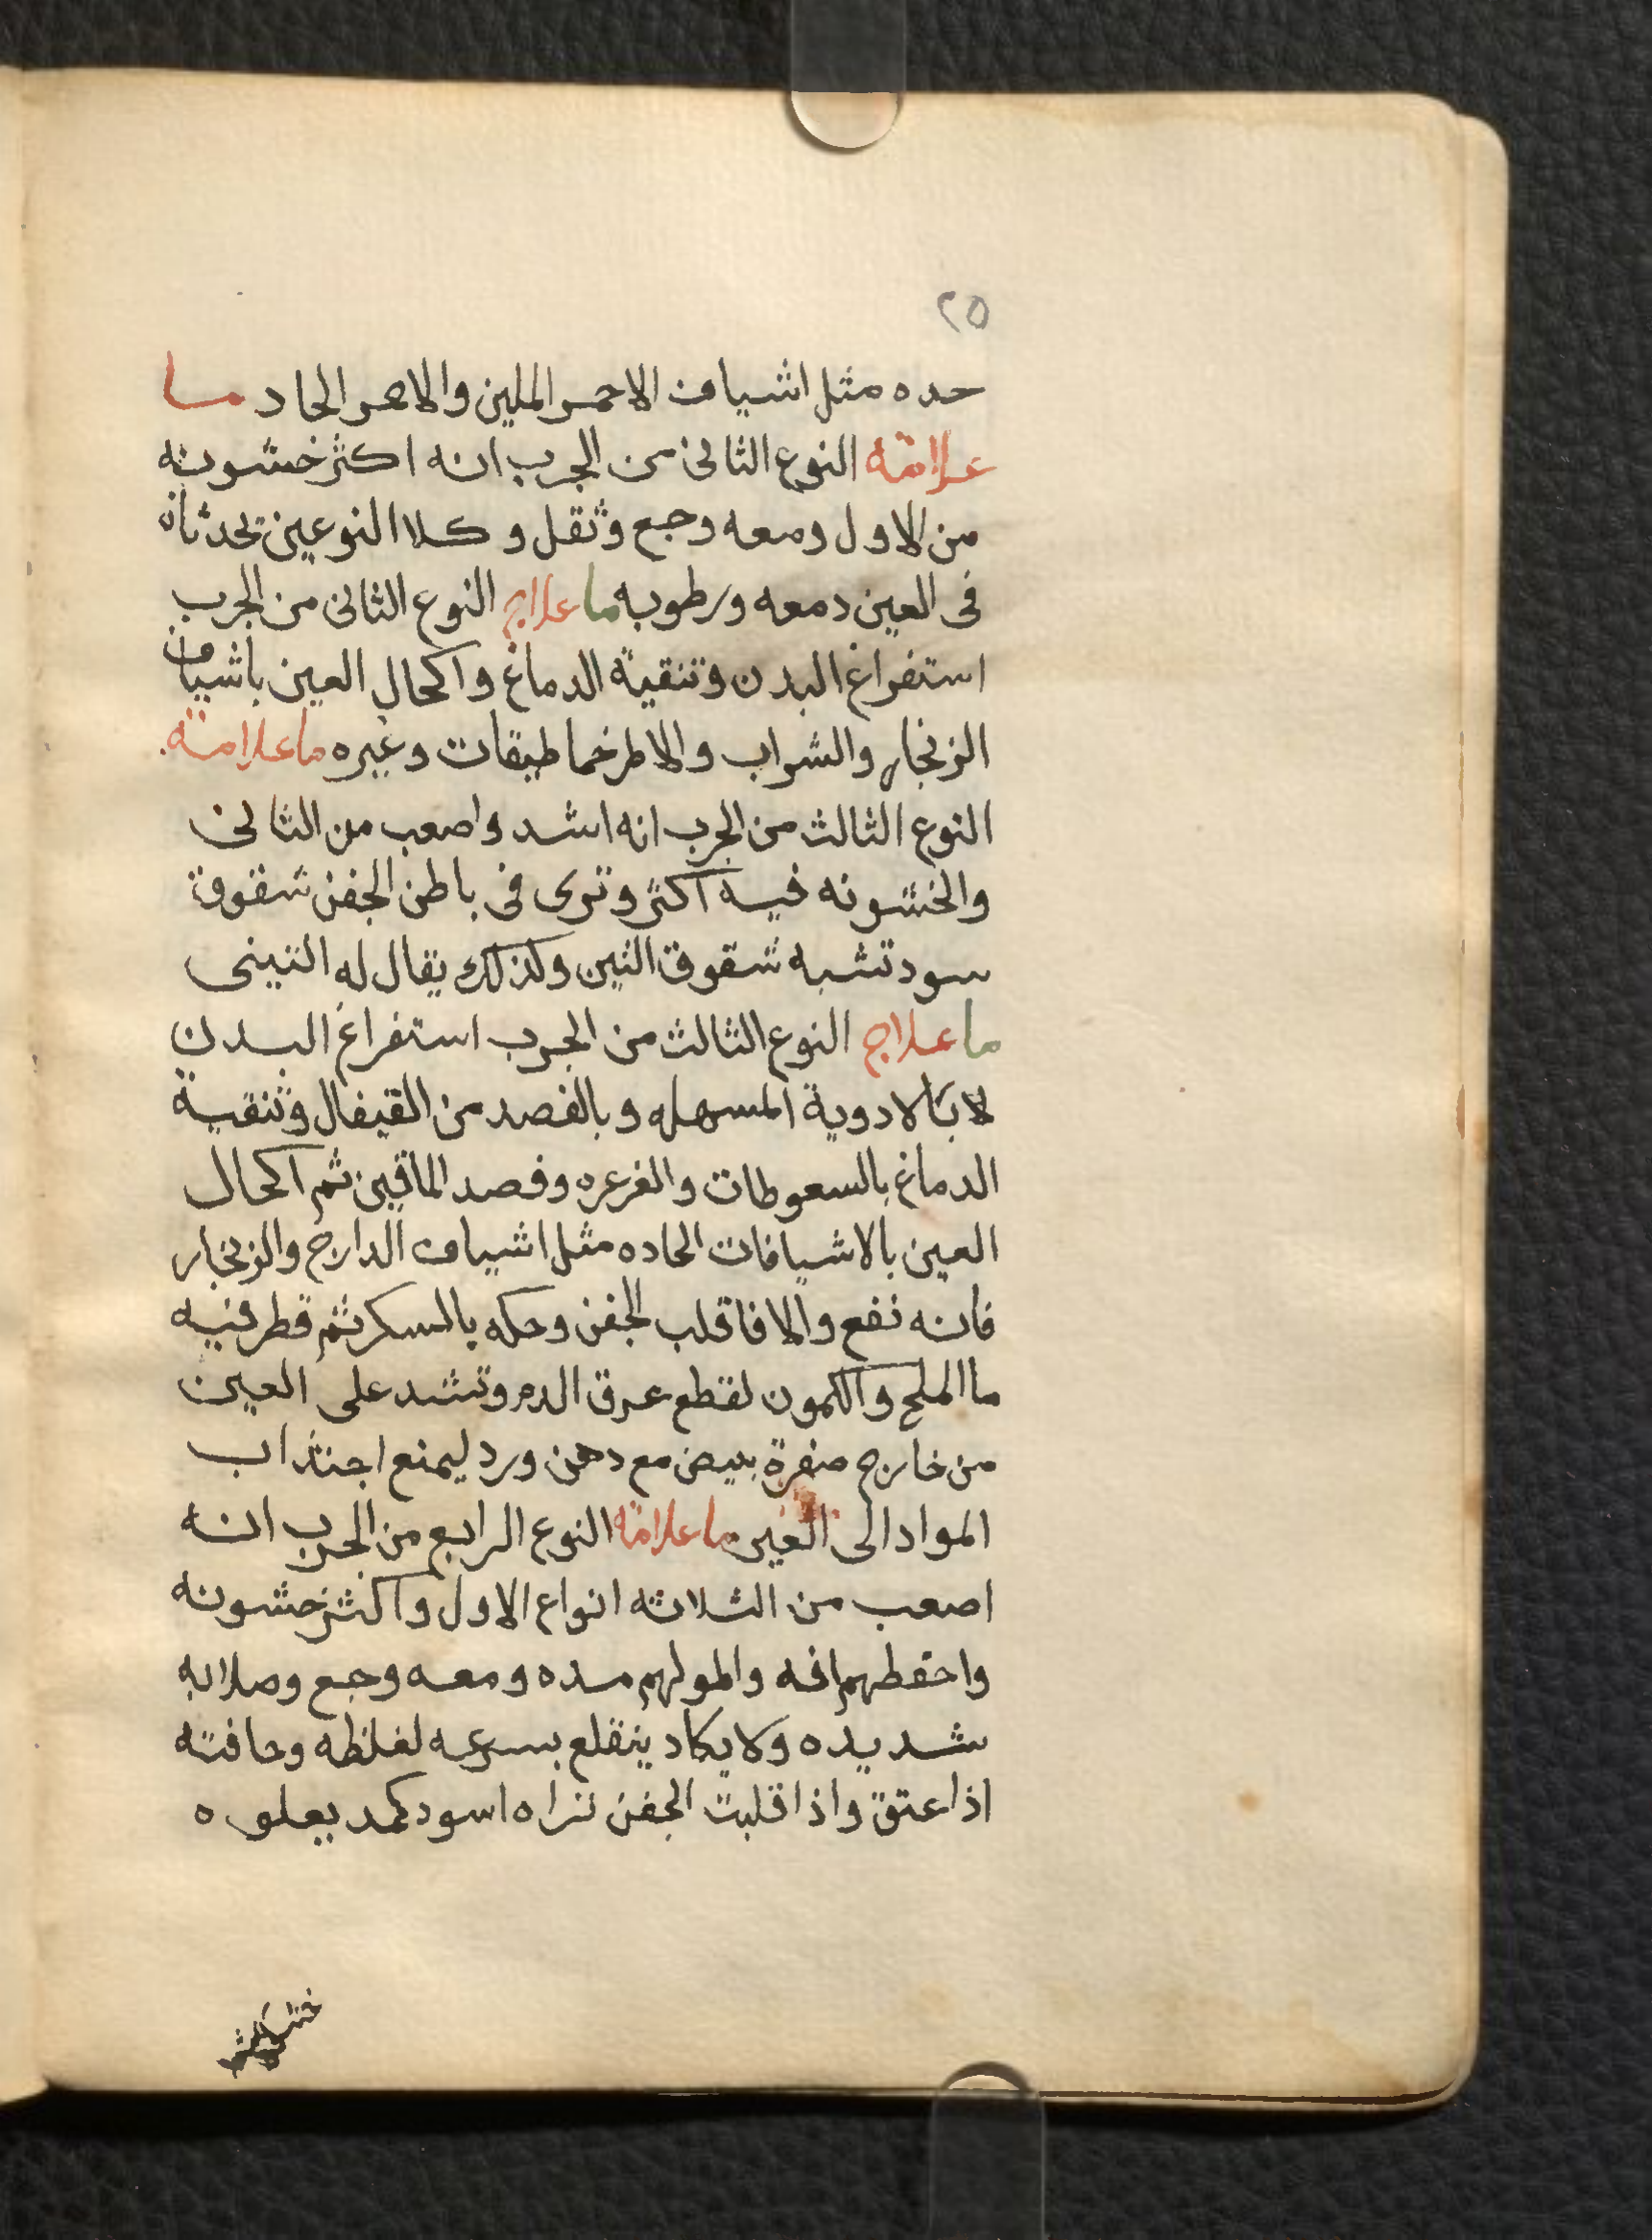 ٢٥
حده مثل اشياف الاحمر الملين والاحمر الحاد ما
علامة النوع الثانى من الجرب انه اكثر خشونه
من الاول ومعه وجع وثقل وكلا النوعين تحدثان
فى العين دمعه ورطوبه ما علاج النوع الثانى من الجرب
استفراغ البدن وتنقية الدماغ واكحال العين باشياف
الزنجار والشراب والاطرخماطيقات وغيره ما علامة
النوع الثالث من الجرب انه اشد واصعب من الثانى
والخشونه فيه اكثر وترى فى باطن الجفن شقوق
سود تشبه شقوق التين ولذلك يقال له التينى
ما علاج النوع الثالث من الجرب استفراغ البدن
بالادوية المسهله وبالفصد من القيفال وتنقية
الدماغ بالسعوطات والغرغره وفصد الماقين ثم اكحال
العين بالاشيافات الحاده مثل اشياف الدارج والزنجار
فانه نفع والا فاقلب الجفن وحكه بالسكر ثم قطر فيه
ما الملح والكمون لقطع عرق الدم وتشد على العين
من خارج صفرة بيض مع دهن ورد ليمنع اجتذاب
المواد الى العين ما علامة النوع الرابع من الجرب انه
اصعب من الثلاثه انواع الاول واكثر خشونه
افه ومعه وجع وصلابه
شديده ولا يكاد ينقلع بسرعه لغلظه وحافته
اذا عتق واذا قلبت الجفن تراه اسود كمد يعلوه